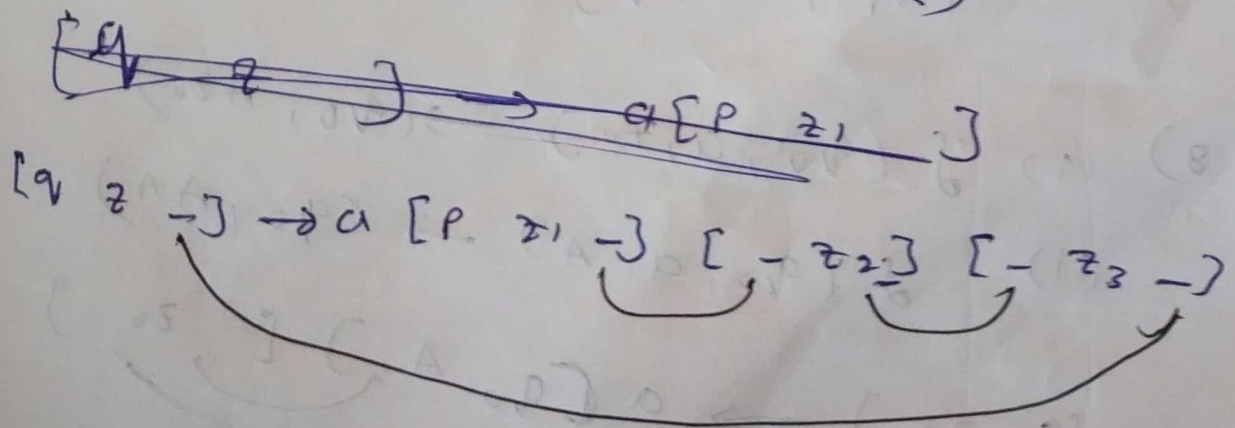 [q z ] → a [p z1 ]
[q z _] → a [p z1 _] [_ z2 _] [_ z3 _]